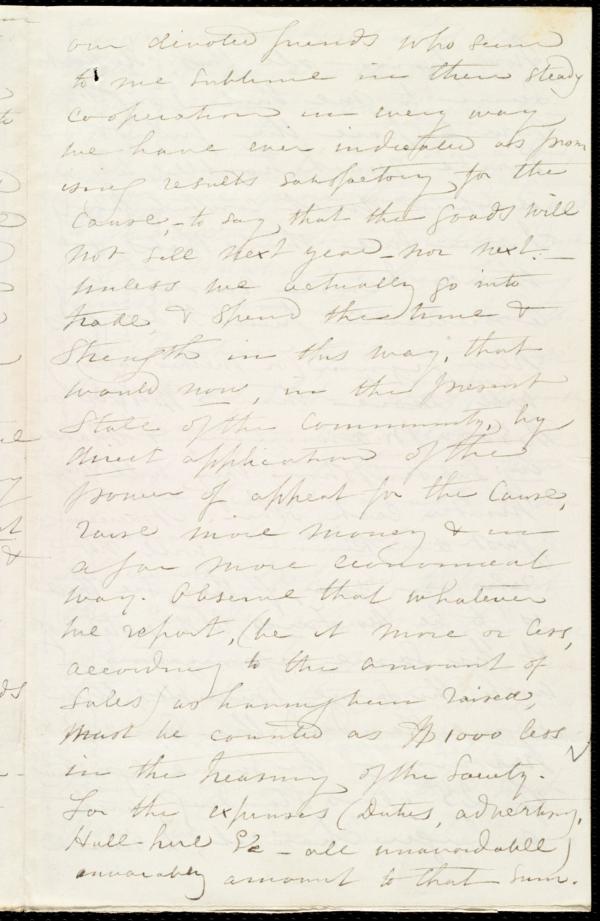 our devoted friends who seem
to me sublime in their steady
cooperation in every way
we have ever indicated as prom
ising results satisfactory for the
cause, - to say that the goods will
not sell next year - nor next. -
unless we actually go into
trade, & spend the time &
strength in this way, that
would now, in the present
state of the community, by
direct application of the
power of appeal for the Cause,
raise more money & in
a far more economical
way. Observe that whatever
we report, (be it more or less,
according to the amount of
Sales) as having been raised,
must be counted as $1000 less
in the treasury of the Society.
For the expenses (Duties, advertising,
Hall-hire &c - all unavoidable)
invariably amount to that sum.